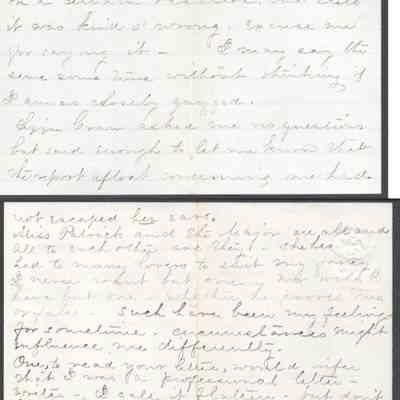 it was kind o' wrong. Excuse me
for saying it - I may say the
same some time without thinking if
I am as closely gagged.
Lizzie asked me no questions
but said enough to let me know that
the report afloat concerning me had
not escaped her ears.
Miss Patrick and the Major are all and
all to each other are they - she has
had to many lovers to suit my
I never want but one, and
have but one, whether he proves true
or false. Such have been my feelings
for sometime - circumstances might
influence me differently.
One, to read your letter, would infer
that I was a professional letter -
writer - I call it but don't